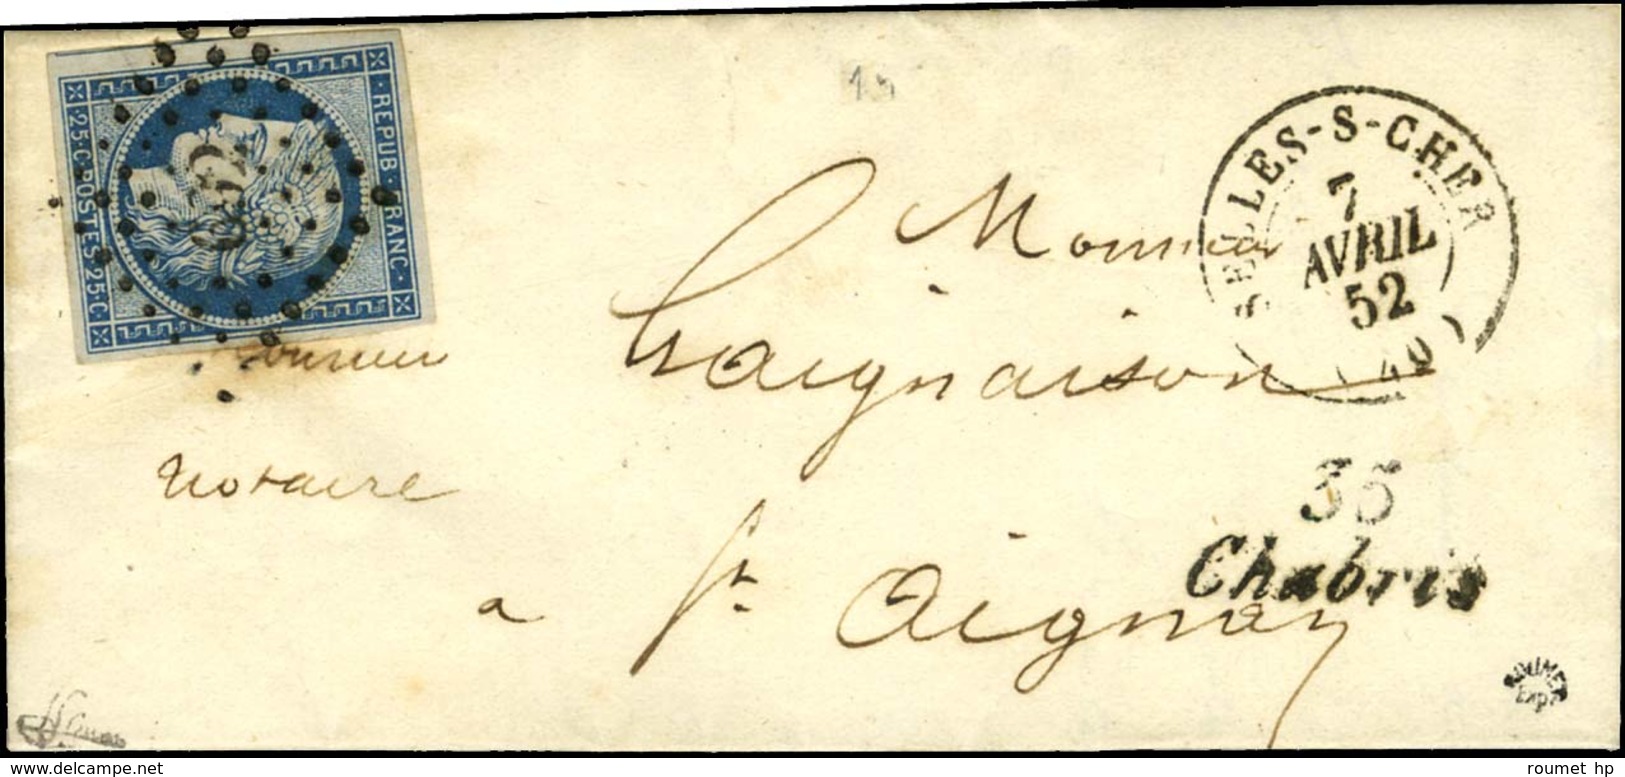 REPUB·FRANC·
·25·C·POSTES·25·C·
SELLES-S-CHER
7
AVRIL
52
(40)
15
Monsieur
Monsieur
notaire
35
Chabris
a St Aignan
ROUMET
Exp.
www.delcampe.net
roumet hp